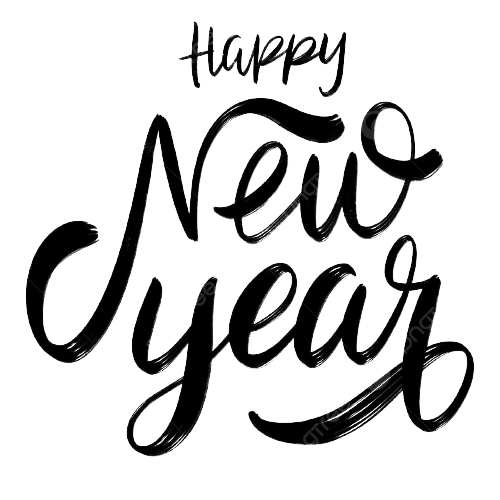 Happy
New
year